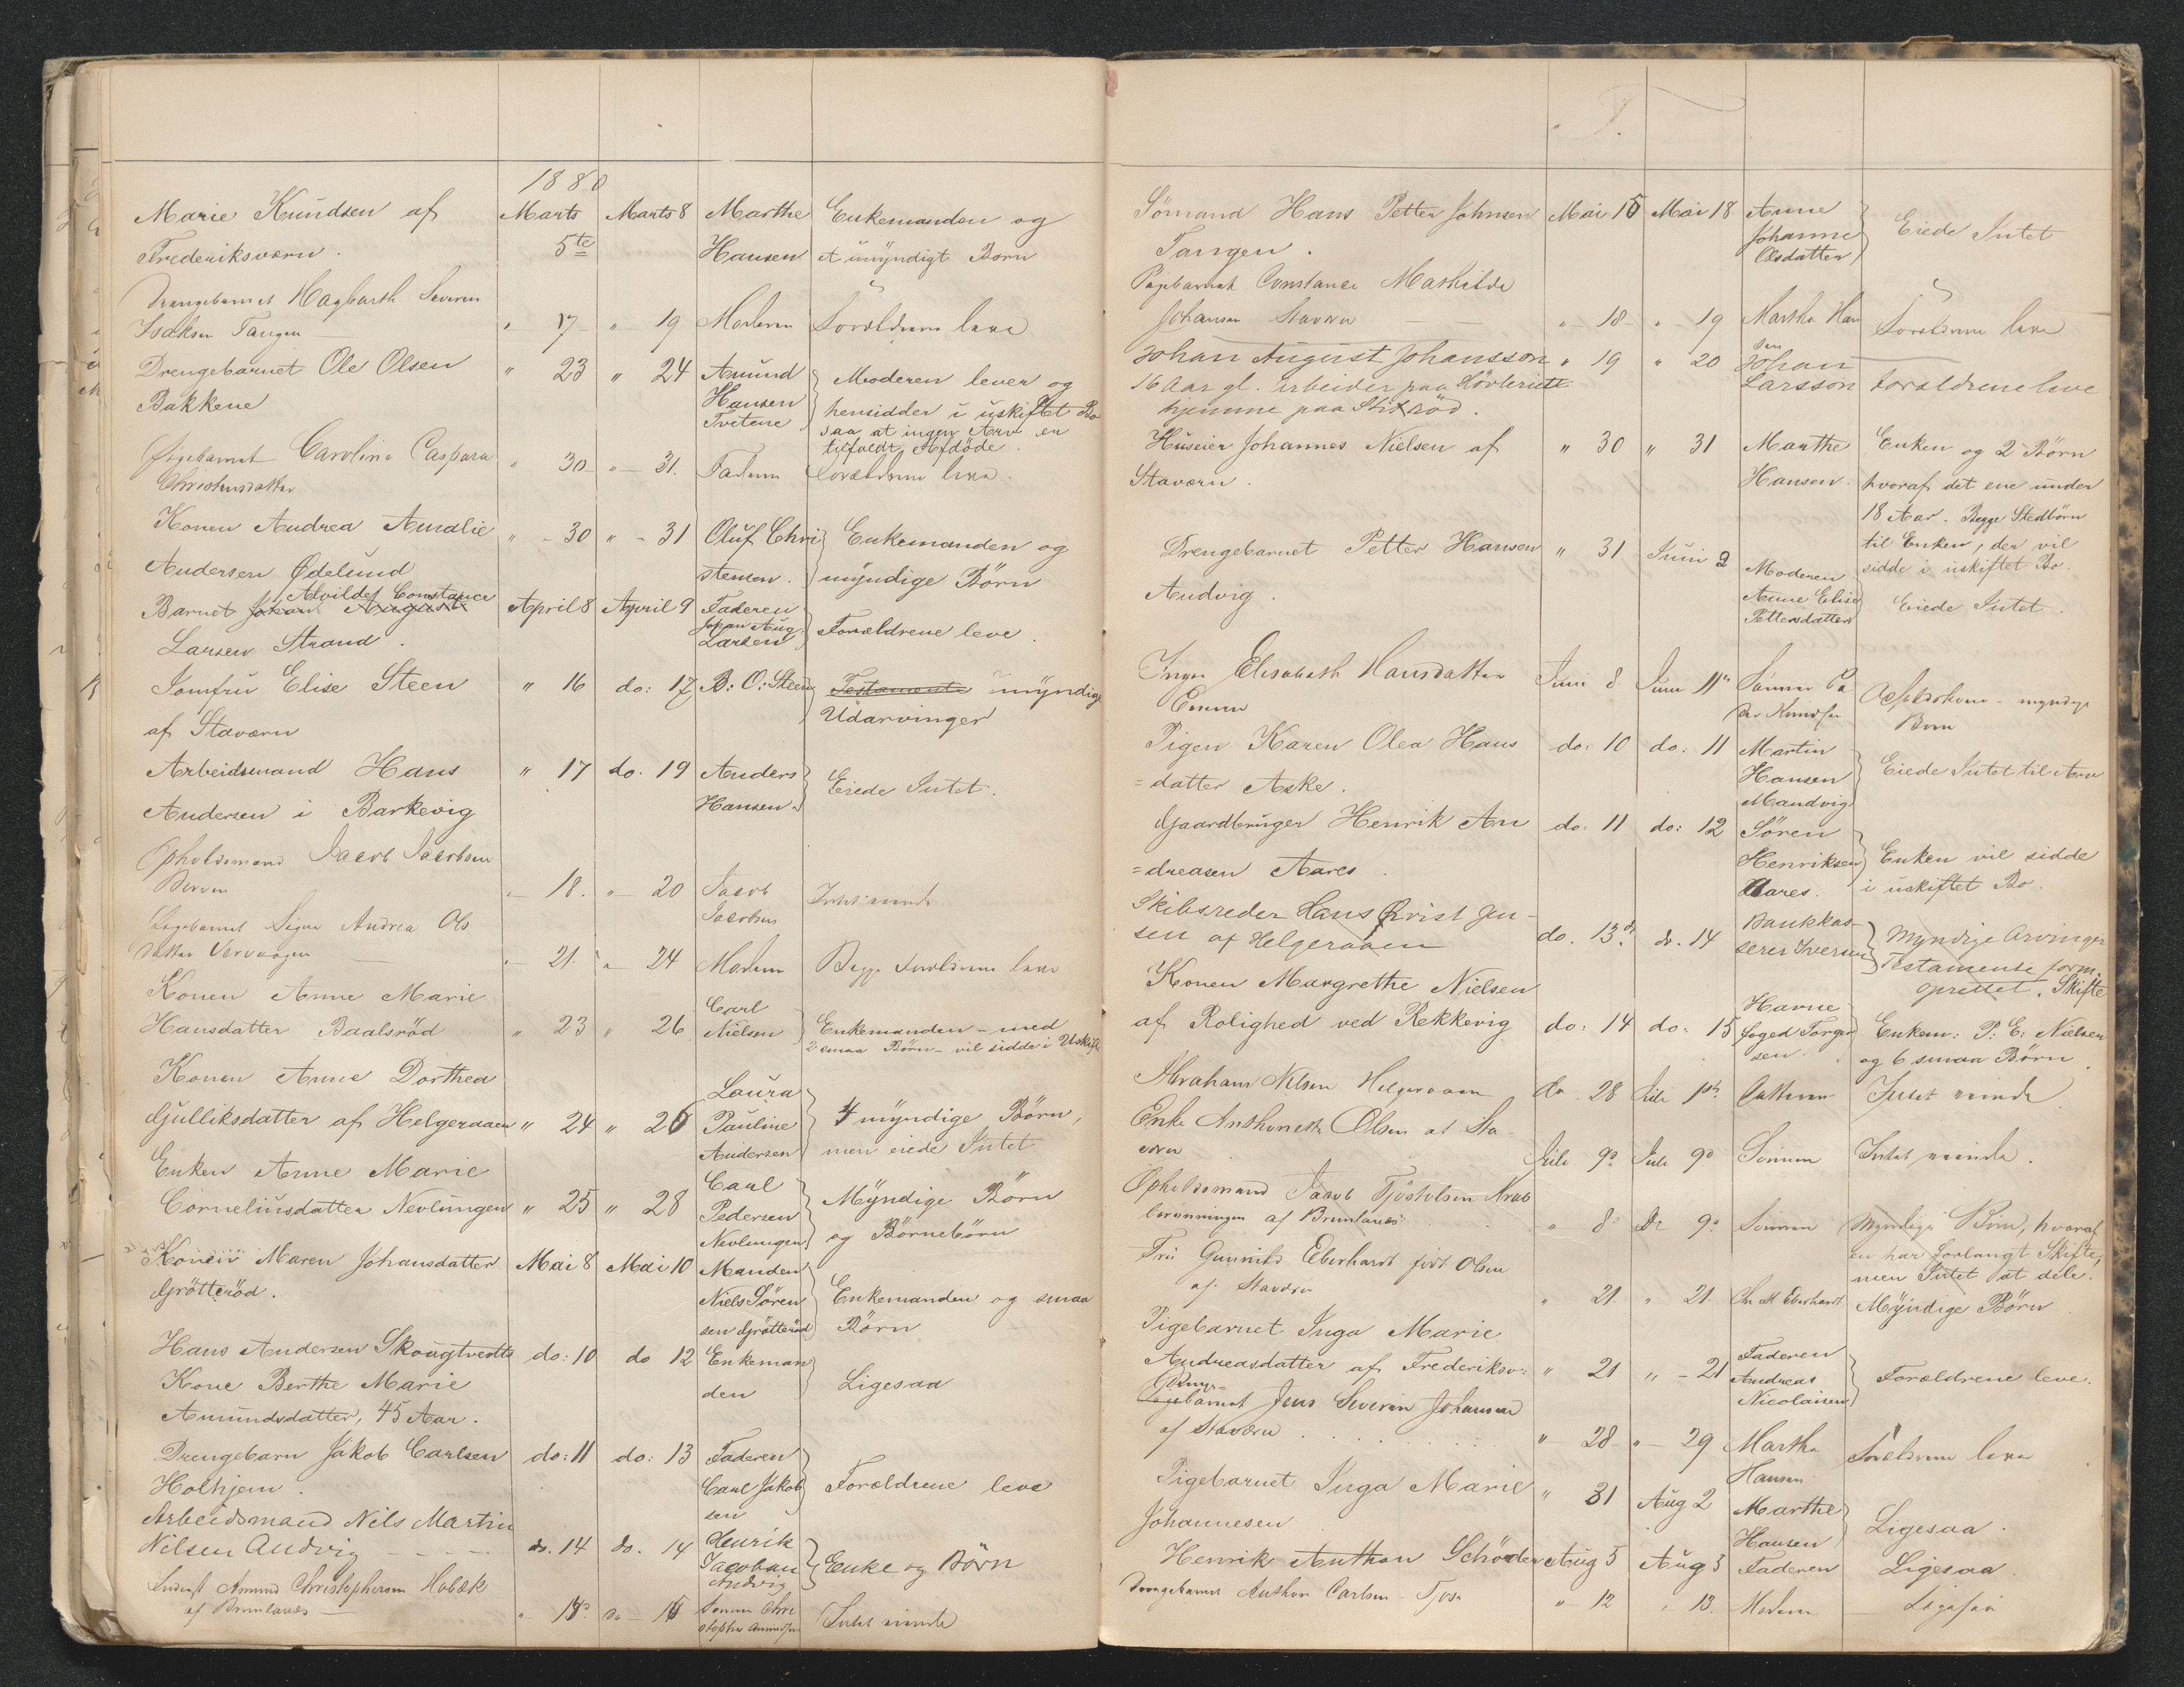 1880
Marie Knudsen af Marts Marts 8 Marthe Enkemanden og
Frederiksværn. 5te Hansen et umyndigt Barn
Drengebarnet Hagbarth Severin
Isaksen Tangen " 17 " 19 Moderen Forældrene leve
Drengebarnet Ole Olsen " 23 " 24 Amund Moderen lever og
Bakkene Hansen hensidder i uskiftet Bo
Tvetene saa at ingen Arv er
tilfaldt Afdøde.
Pigebarnet Caroline Caspara " 30 " 31. Faderen Forældrene leve.
Christensdatter
Konen Andrea Amalie " - 30 " - 31 Oluf Chri Enkemanden og
Andersen Ødelund stensen. myndige Børn
Alvilde Constance
Barnet Johan August April 8 April 9 Faderen
Larsen Strand. Johan Aug. Larsen Forældrene leve.
Jomfru Elise Steen " 16 do: 17 B: O: Steen Testamente myndige
af Staværn Udarvinger
Arbeidsmand Hans " 17 do. 19 Anders Eiede Intet.
Andersen i Barkevig Hansen.
Opholdsmand Jacob Jacobsen
" 18. " 20 Jacob Intet
Jacobsen
Pigebarnet Signe Andrea Ols
datter Vervaagen " 21. " 24 Moderen Begge Forældrene leve
Konen Anne Marie Carl
Hansdatter Baalsrød " 23 " 26 Nielsen Enkemanden - med
2 smaa Børn - vil sidde i Uskifte
Konen Anne Dorthea Laura
Gulliksdatter af Helgeraaen " 24 " 26 Pauline 4 myndige Børn,
Andersen men eiede Intet
Enken Anne Marie Carl
Corneliusdatter Nevlungen " 25 " 28 Pedersen Myndige Børn
Nevlungen og Børnebørn
Konen Maren Johansdatter Mai 8 Mai 10 Manden
Grøtterød. Niels Søren Enkemanden og smaa
sen Grøtterød Børn
Hans Andersen Skougtvedts do: 10 do 12 Enkeman
Kone Berthe Marie den Ligesaa
Amundsdatter, 45 Aar.
Drengebarn Jakob Carlsen do: 11 do: 13 Faderen
Holhjem. Carl Jakob Forældrene leve
sen
Arbeidsmand Nils Martin
Nilsen Andvig - - - do. 14 do. 14 Henrik Enke og Børn
Jacobsen
Andvig
Amund Christophersen Holbæk
af Brunlanæs Sønnen Chri
stopher Amundsen Intet
Sømand Hans Petter Johnsen Mai 15 Mai 18 Anne Eiede Intet
Tangen. Johanne
Olsdatter
Pigebarnet Constance Mathilde
Johansen Staværn " 18 " 19 Marthe Han Forældrene leve
sen
Johan August Johansson " 19 " 20 Johan
16 Aar gl. arbeider paa Høvleriet Larsson Forældrene leve
hjemme paa Stixrød.
Huseier Johannes Nielsen af " 30 " 31 Marthe Enken og 2 Børn
Staværn. Hansen. hvoraf det ene under
18 Aar. Begge Stedbørn
til Enken, der vil
sidde i uskiftet Bo.
Drengebarnet Petter Hansen " 31 Juni 2 Moderen
Andvig. Anne Elise Eiede Intet.
Pettersdatter
Elisabeth Hansdatter Juni 8 Juni 11 Sønnen myndige
Børn
Pigen Karen Olea Hans do: 10 do: 11 Martin
=datter Aske. Hansen Eiede Intet til Arv
Mandvig
Gaardbruger Henrik An do: 11 do: 12 Søren
=dreasen Aares. Henriksen Enken vil sidde
Aares. i uskiftet Bo.
Skibsreder Hans Christ Jen-
sen af Helgeraaen do. 13 do. 14 Bankkas- Myndige Arvinger
serer Iversen Testamente form.
oprettet. Skifte
Konen Margrethe Nielsen Havne
af Rolighed ved Rekkevig do: 14 do: 15 foged Torger Enkem: P: E: Nielsen
sen. og 6 smaa Børn.
Abraham Nilsen Helgeraaen do 28 Juli 1ste Intet
Enke Olsen af Sta-
værn Juli 9 Juli 9 Sønnen Intet.
Opholdsmand Jacob
af Brunlanæs " 8 Do 9 Sønnen Myndige Børn, hvoraf
en har forlangt Skifte,
men Intet at dele.
Fru Gunnild Eberhardt født Olsen
af Staværn " 21. " 21. Eberhardt Myndige Børn
Pigebarnet Inga Marie
Andreasdatter af Frederiksv: " 21 " - 21 Faderen
Andreas Forældrene leve.
Nicolaisen
Drenge-
Pigebarnet Jens Severin Johansen
af Staværn " 28 " 29 Marthe Forældrene leve
Hansen
Pigebarnet Inga Marie " 31 Aug 2 Marthe
Johannesen Hansen Ligesaa.
Henrik Anthon Schöder Aug 5 Aug 5 Faderen Ligesaa.
Drengebarnet Anthon Carlsen " 12 " 13. Moderen Ligesaa